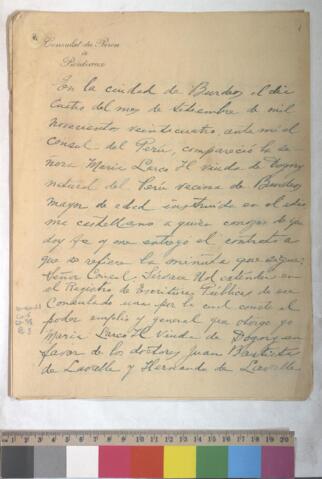 Consulat du Pérou
à
Bordeaux
En la ciudad de Burdeos el dia
cuatro del mes de Setiembre de mil
novecientos veinticuatro, ante mi el
Consul del Perú, compareció la se-
ñora Maria Larco H. viuda de
natural del Perú vecina de Burdeos
mayor de edad instruida en el idio
ma castellano a quien conozco de que
doy fe y me entregó el contrato a
que se refiere la minuta que sigue:
Señor Consul: Sírvase Ud. extender en
el Registro de Escrituras Públicas de ese
Consulado una por la cual conste el
poder amplio y general que otorgo yo
Maria Larco H. viuda de
favor de los doctores Juan Bautista
de Lavalle y Hernando de Lavalle
1 2 3 4 5 6 7 8 9 10 11 12 13 14 15 16 17 18 19 20